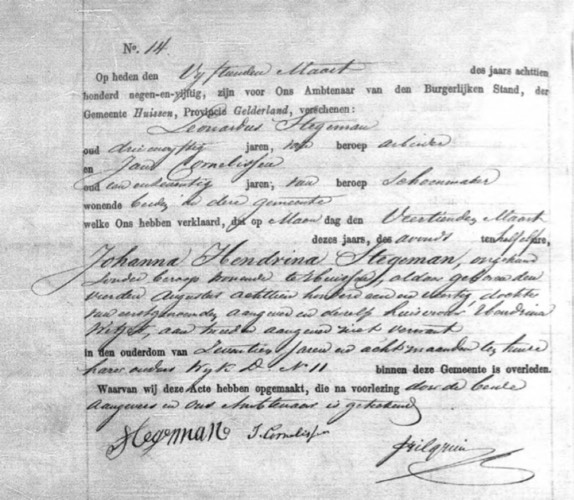 No. 14.
Op heden den Vijftienden Maart des jaars achttien
honderd negen-en-vijftig, zijn voor Ons Ambtenaar van den Burgerlijken Stand, der
Gemeente Huissen, Provincie Gelderland, verschenen:
Leonardus Stegeman
oud drieenvijftig jaren, van beroep arbeider
en Jan Cornelissen
oud een en twintig jaren, van beroep Schoenmaker
wonende beide in deze gemeente
welke Ons hebben verklaard, dat op Maandag den Veertienden Maart
dezes jaars, des avonds ten half elf ure,
Johanna Hendrina Stegeman, ongehuwd
zonder beroep wonende te Huissen, aldaar geboren den
vierden Augustus achttien honderd een en veertig dochter
van eerstgenoemden aangever en deszelfs huisvrouw Hendrina
aan tweeden aangever niet verwant
in den ouderdom van Zeventien Jaren en acht maanden ten huize
harer ouders Wijk D. N 11 binnen deze Gemeente is overleden.
Waarvan wij deze Acte hebben opgemaakt, die na voorlezing door de beide
aangevers en ons Ambtenaar is geteekend
Stegeman J. Cornelissen
Pilgrim